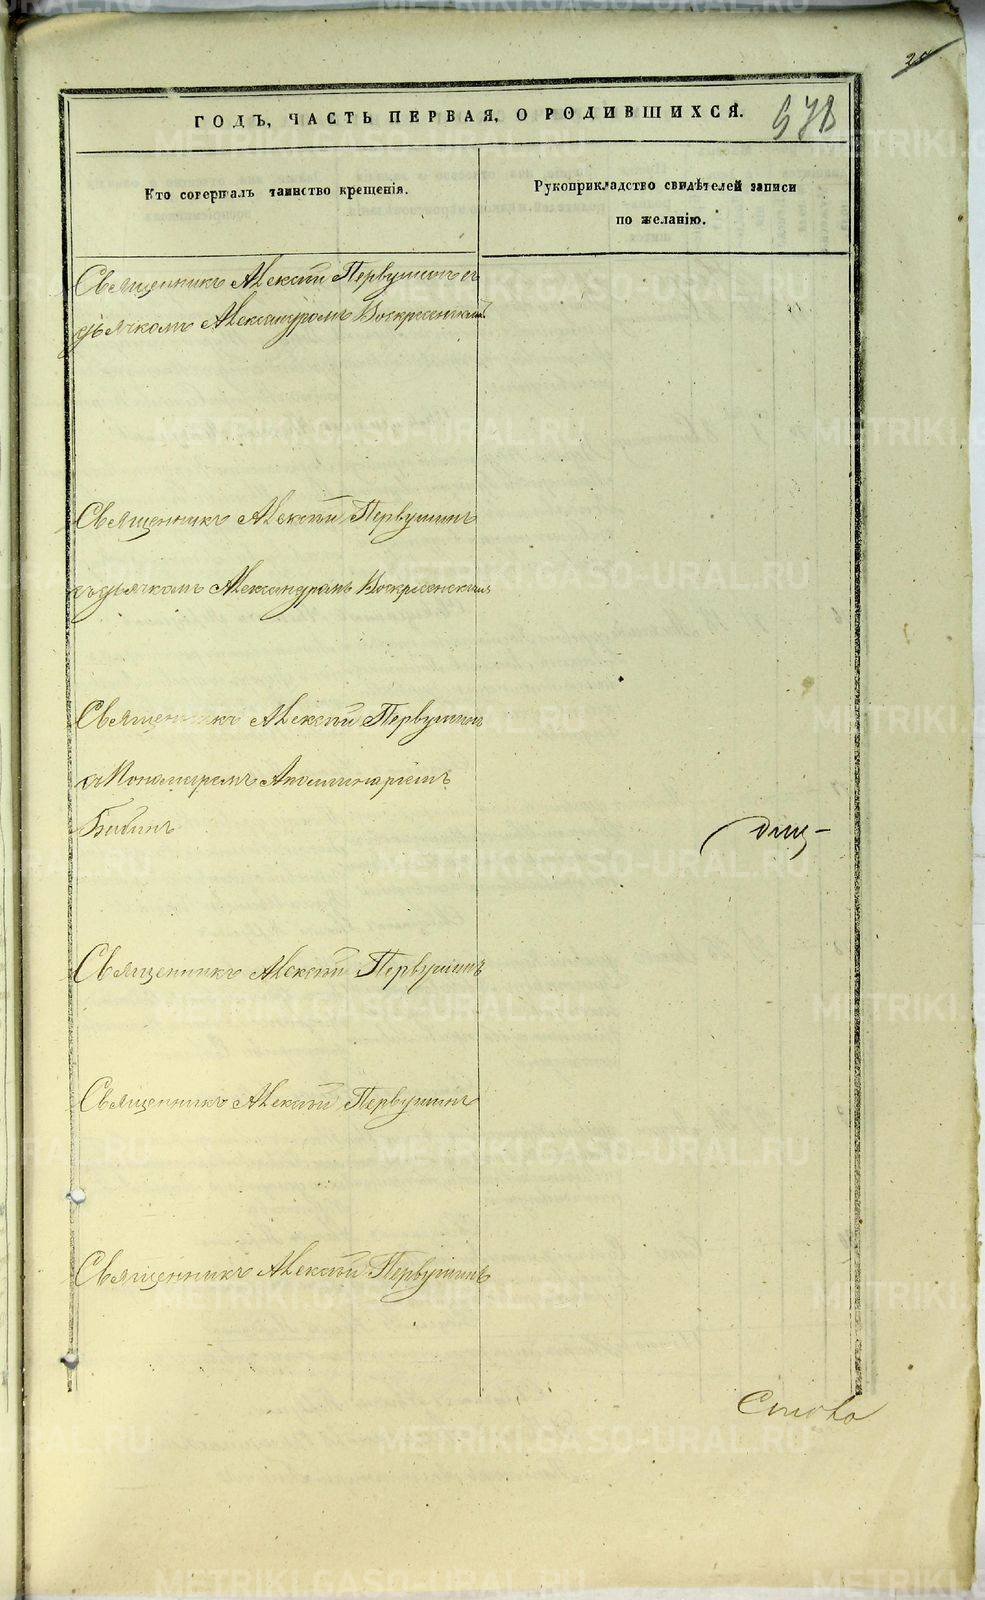 ГОДЪ, ЧАСТЬ ПЕРВАЯ, О РОДИВШИХСЯ.
Кто совершалъ таинство крещенія.
Рукоприкладство свидѣтелей записи
по желанію.
Священникъ Алексѣй Первушинъ съ
дьячкомъ Александромъ Воскресенскимъ
Священникъ Алексѣй Первушинъ
съ дьячкомъ Александромъ Воскресенскимъ
Священникъ Алексѣй Первушинъ
съ Пономаремъ Аполинаріемъ
Священникъ Алексѣй Первушинъ
Священникъ Алексѣй Первушинъ
Священникъ Алексѣй Первушинъ
METRIKI.GASO-URAL.RU